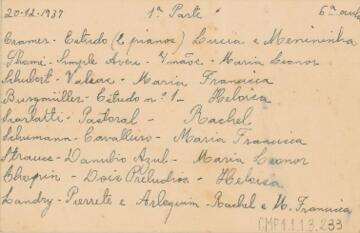 20-12-1937 1ª Parte 6ª aud
Cramer - Estudo (2 pianos) Lucia e Menininha
Thomé - Simple Aveu - 4 mãos - Maria Leonor
Schubert - Valsas - Maria Francisca
Burgmüller - Estudo nº 1 - Heloisa
Scarlatti - Pastoral - Rachel
Schumann - Cavalleiro - Maria Francisca
Strauss - Danubio Azul - Maria Leonor
Chopin - Dois Preludios - Heloisa
Landry - Pierrete e Arlequim - Rachel e M. Francisca
CMP1.1.3.233